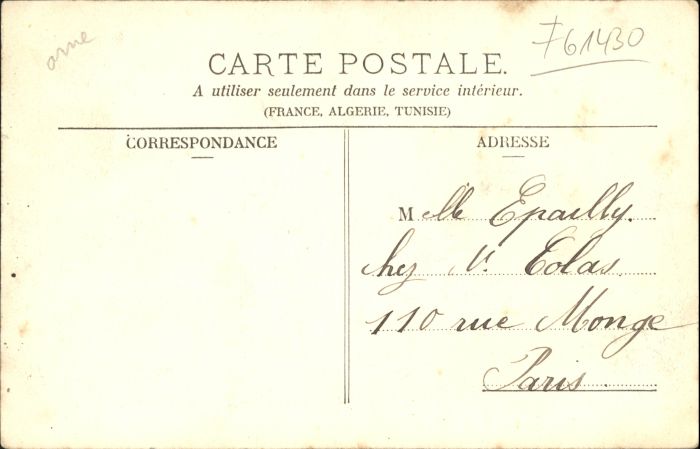 orne
F61430
CARTE POSTALE.
A utiliser seulement dans le service intérieur.
(FRANCE, ALGERIE, TUNISIE)
CORRESPONDANCE
ADRESSE
Melle Epailly.
chez V. Colas
110 rue Monge
Paris